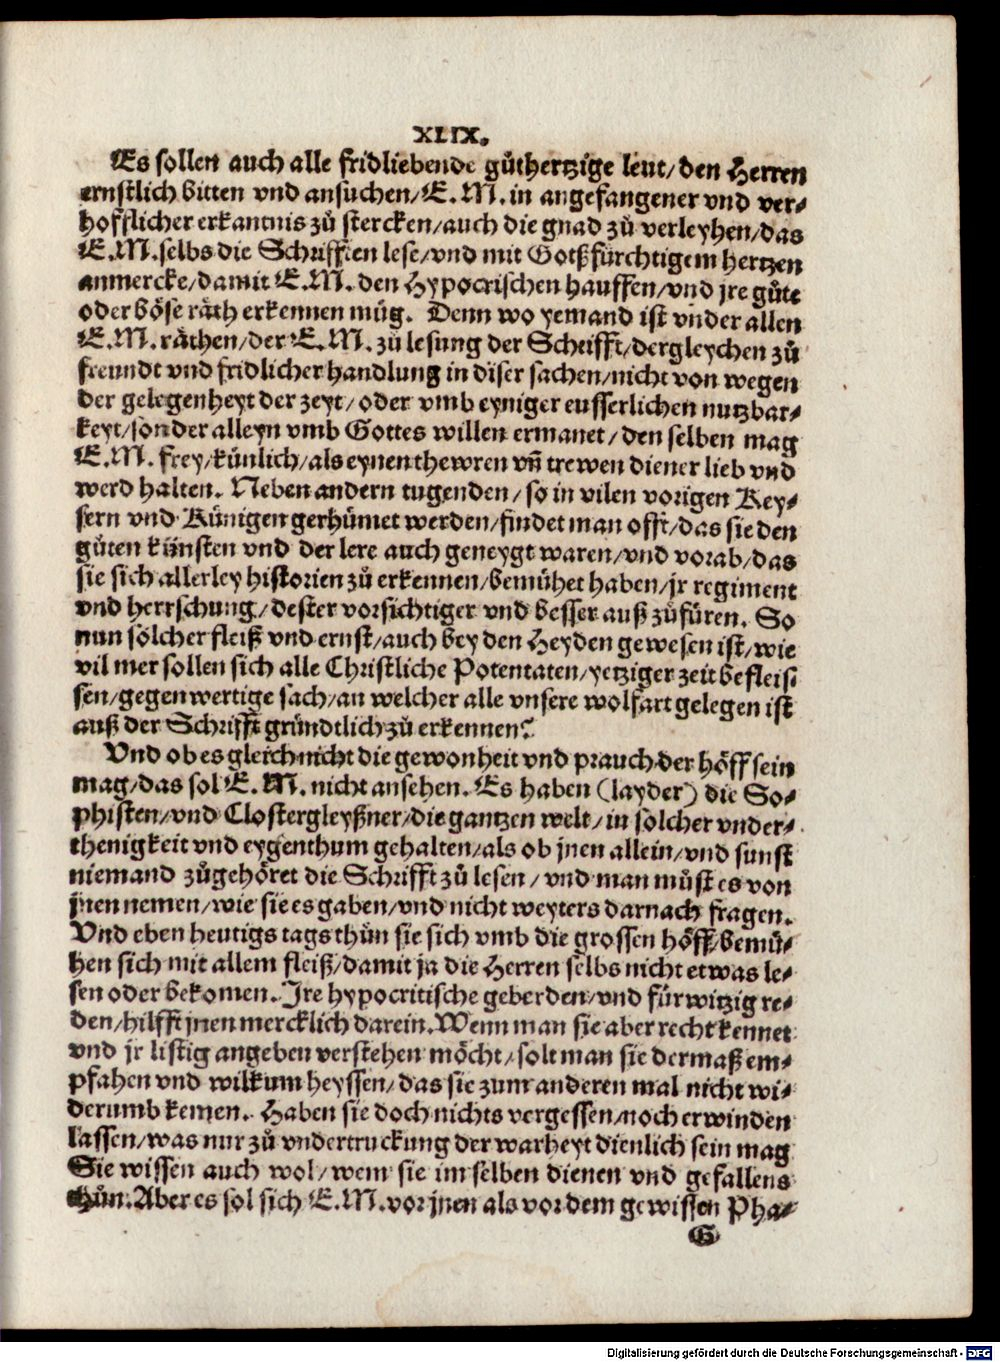 XLIX.
Es sollen auch alle fridliebende gůthertzige leut/den Herren
ernstlich bitten vnd ansuchen/E.M. in angefangener vnd ver⸗
hofflicher erkantnis zů stercken/auch die gnad zů verleyhen/das
E.M. selbs die Schrifften lese/vnd mit Gotßfürchtigem hertzen
anmercke/damit E.M. den Hypocrischen hauffen/vnd jre gůte
oder böse räth erkennen müg. Denn wo yemand ist vnder allen
E.M. räthen/der E.M. zů lesung der Schrifft/dergleychen zů
freundt vnd fridlicher handlung in diser sachen/nicht von wegen
der gelegenheyt der zeyt/oder vmb eyniger eusserlichen nutzbar⸗
keyt/sonder alleyn vmb Gottes willen ermanet/den selben mag
E.M. frey/künlich/als eynen thewren vñ trewen diener lieb vnd
werd halten. Neben andern tugenden/so in vilen vorigen Key⸗
sern vnd Künigen gerhümet werden/findet man offt/das sie den
gůten künsten vnd der lere auch geneygt waren/vnd vorab/das
sie sich allerley historien zů erkennen/bemühet haben/jr regiment
vnd herrschung/dester vorsichtiger vnd besser auß zůfüren. So
nun sölcher fleiß vnd ernst/auch bey den Heyden gewesen ist/wie
vil mer sollen sich alle Christliche Potentaten/yetziger zeit befleis⸗
sen/gegenwertige sach/an welcher alle vnsere wolfart gelegen ist
auß der Schrifft gründtlich zů erkennen?
Vnd ob es gleich nicht die gewonheit vnd prauch der höff sein
mag/das sol E.M. nicht ansehen. Es haben (layder) die So⸗
phisten/vnd Clostergleyßner/die gantzen welt/in solcher vnder⸗
thenigkeit vnd eygenthum gehalten/als ob jnen allein/vnd sunst
niemand zůgehöret die Schrifft zů lesen/vnd man müst es von
jnen nemen/wie sie es gaben/vnd nicht weyters darnach fragen.
Vnd eben heutigs tags thůn sie sich vmb die grossen höff/bemü⸗
hen sich mit allem fleiß/damit ja die Herren selbs nicht etwas le⸗
sen oder bekomen. Ire hypocritische geberden/vnd fürwitzig re⸗
den/hilfft jnen mercklich darein. Wenn man sie aber recht kennet
vnd jr listig angeben verstehen möcht/solt man sie dermaß em⸗
pfahen vnd wilkum heyssen/das sie zum anderen mal nicht wi⸗
derumb kemen. Haben sie doch nichts vergessen/noch erwinden
lassen/was nur zů vndertruckung der warheyt dienlich sein mag
Sie wissen auch wol/wem sie im selben dienen vnd gefallens
thůn. Aber es sol sich E.M. vor jnen als vor dem gewissen Pha⸗
G
Digitalisierung gefördert durch die Deutsche Forschungsgemeinschaft - DFG